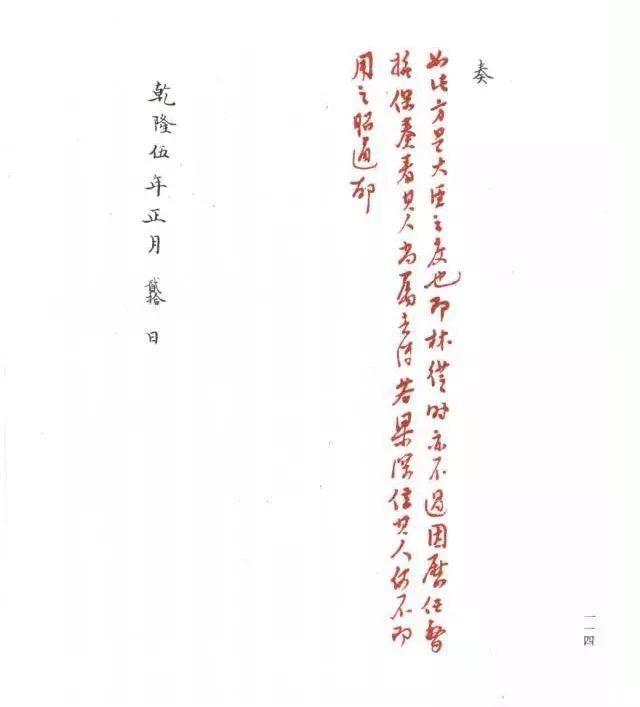 奏
如此方是大臣之度也即林亦不過因歷任督
撫保奏看其人尚属去得若果深信其人何不即
用之昭通耶
乾隆伍年正月貳拾日
一一四